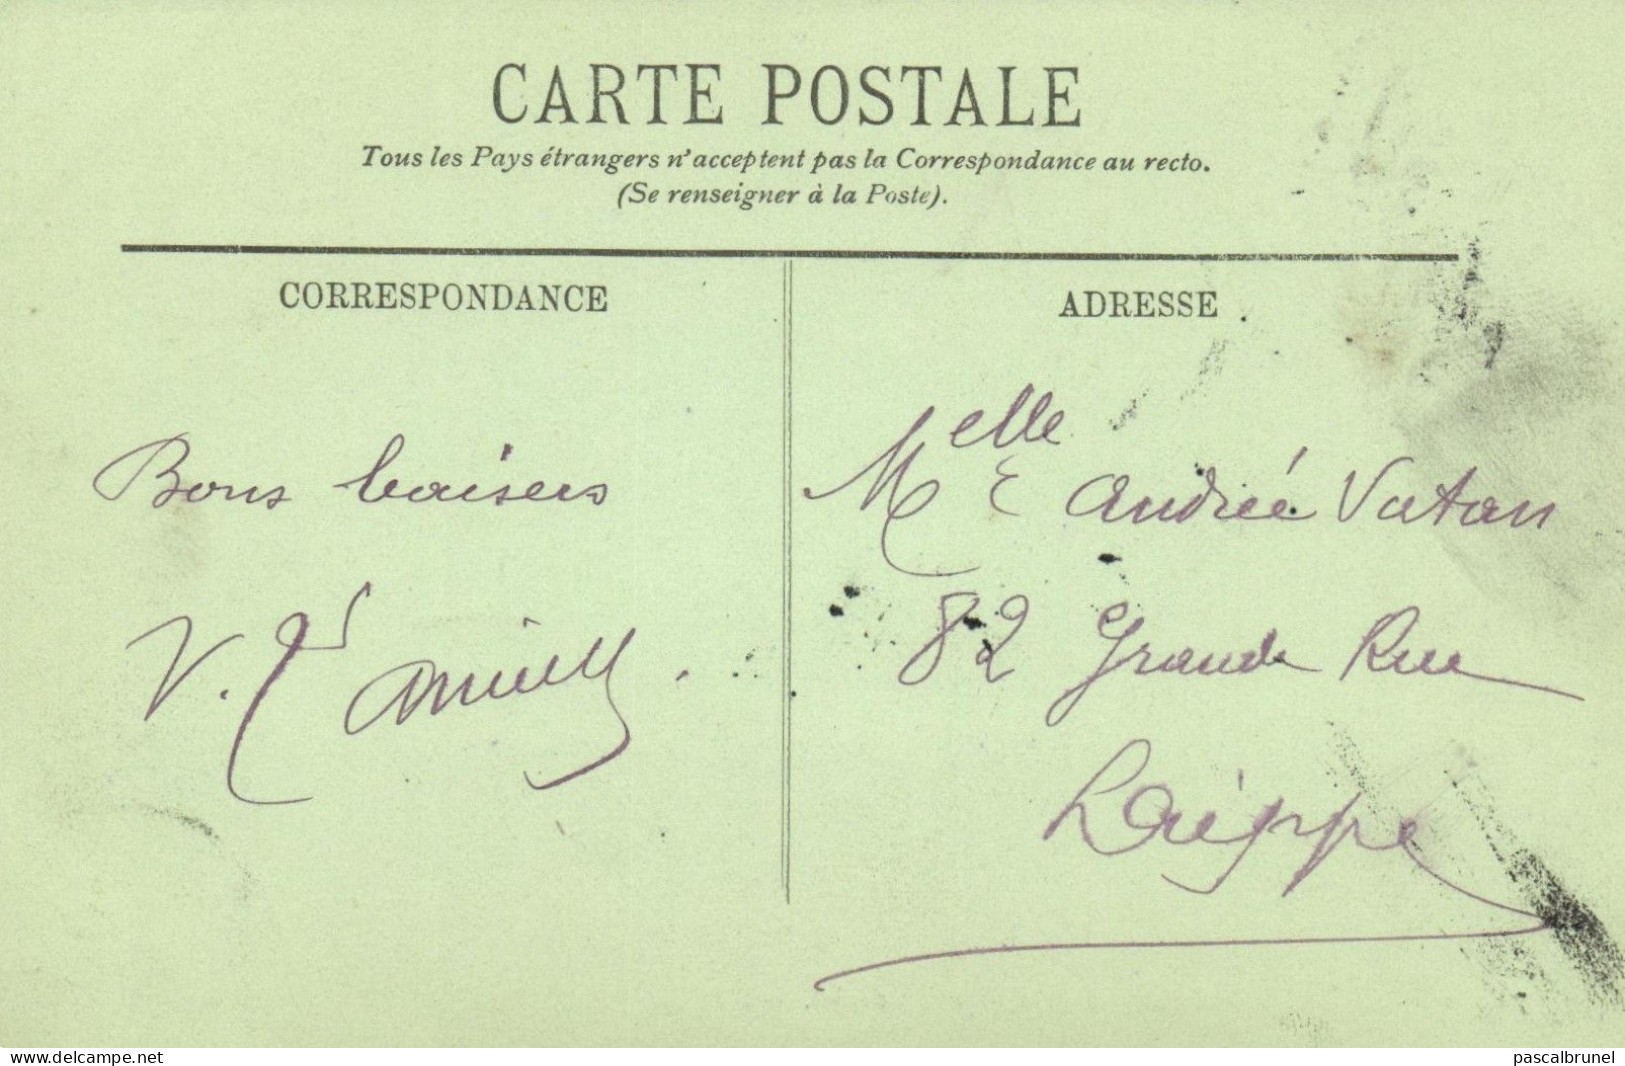 CARTE POSTALE
Tous les Pays étrangers n'acceptent pas la Correspondance au recto.
(Se renseigner à la Poste).
CORRESPONDANCE
ADRESSE
Bons baisers
V.
Melle Andrée Vatan
82 Grande Rue
Dieppe
www.delcampe.net
pascalbrunel